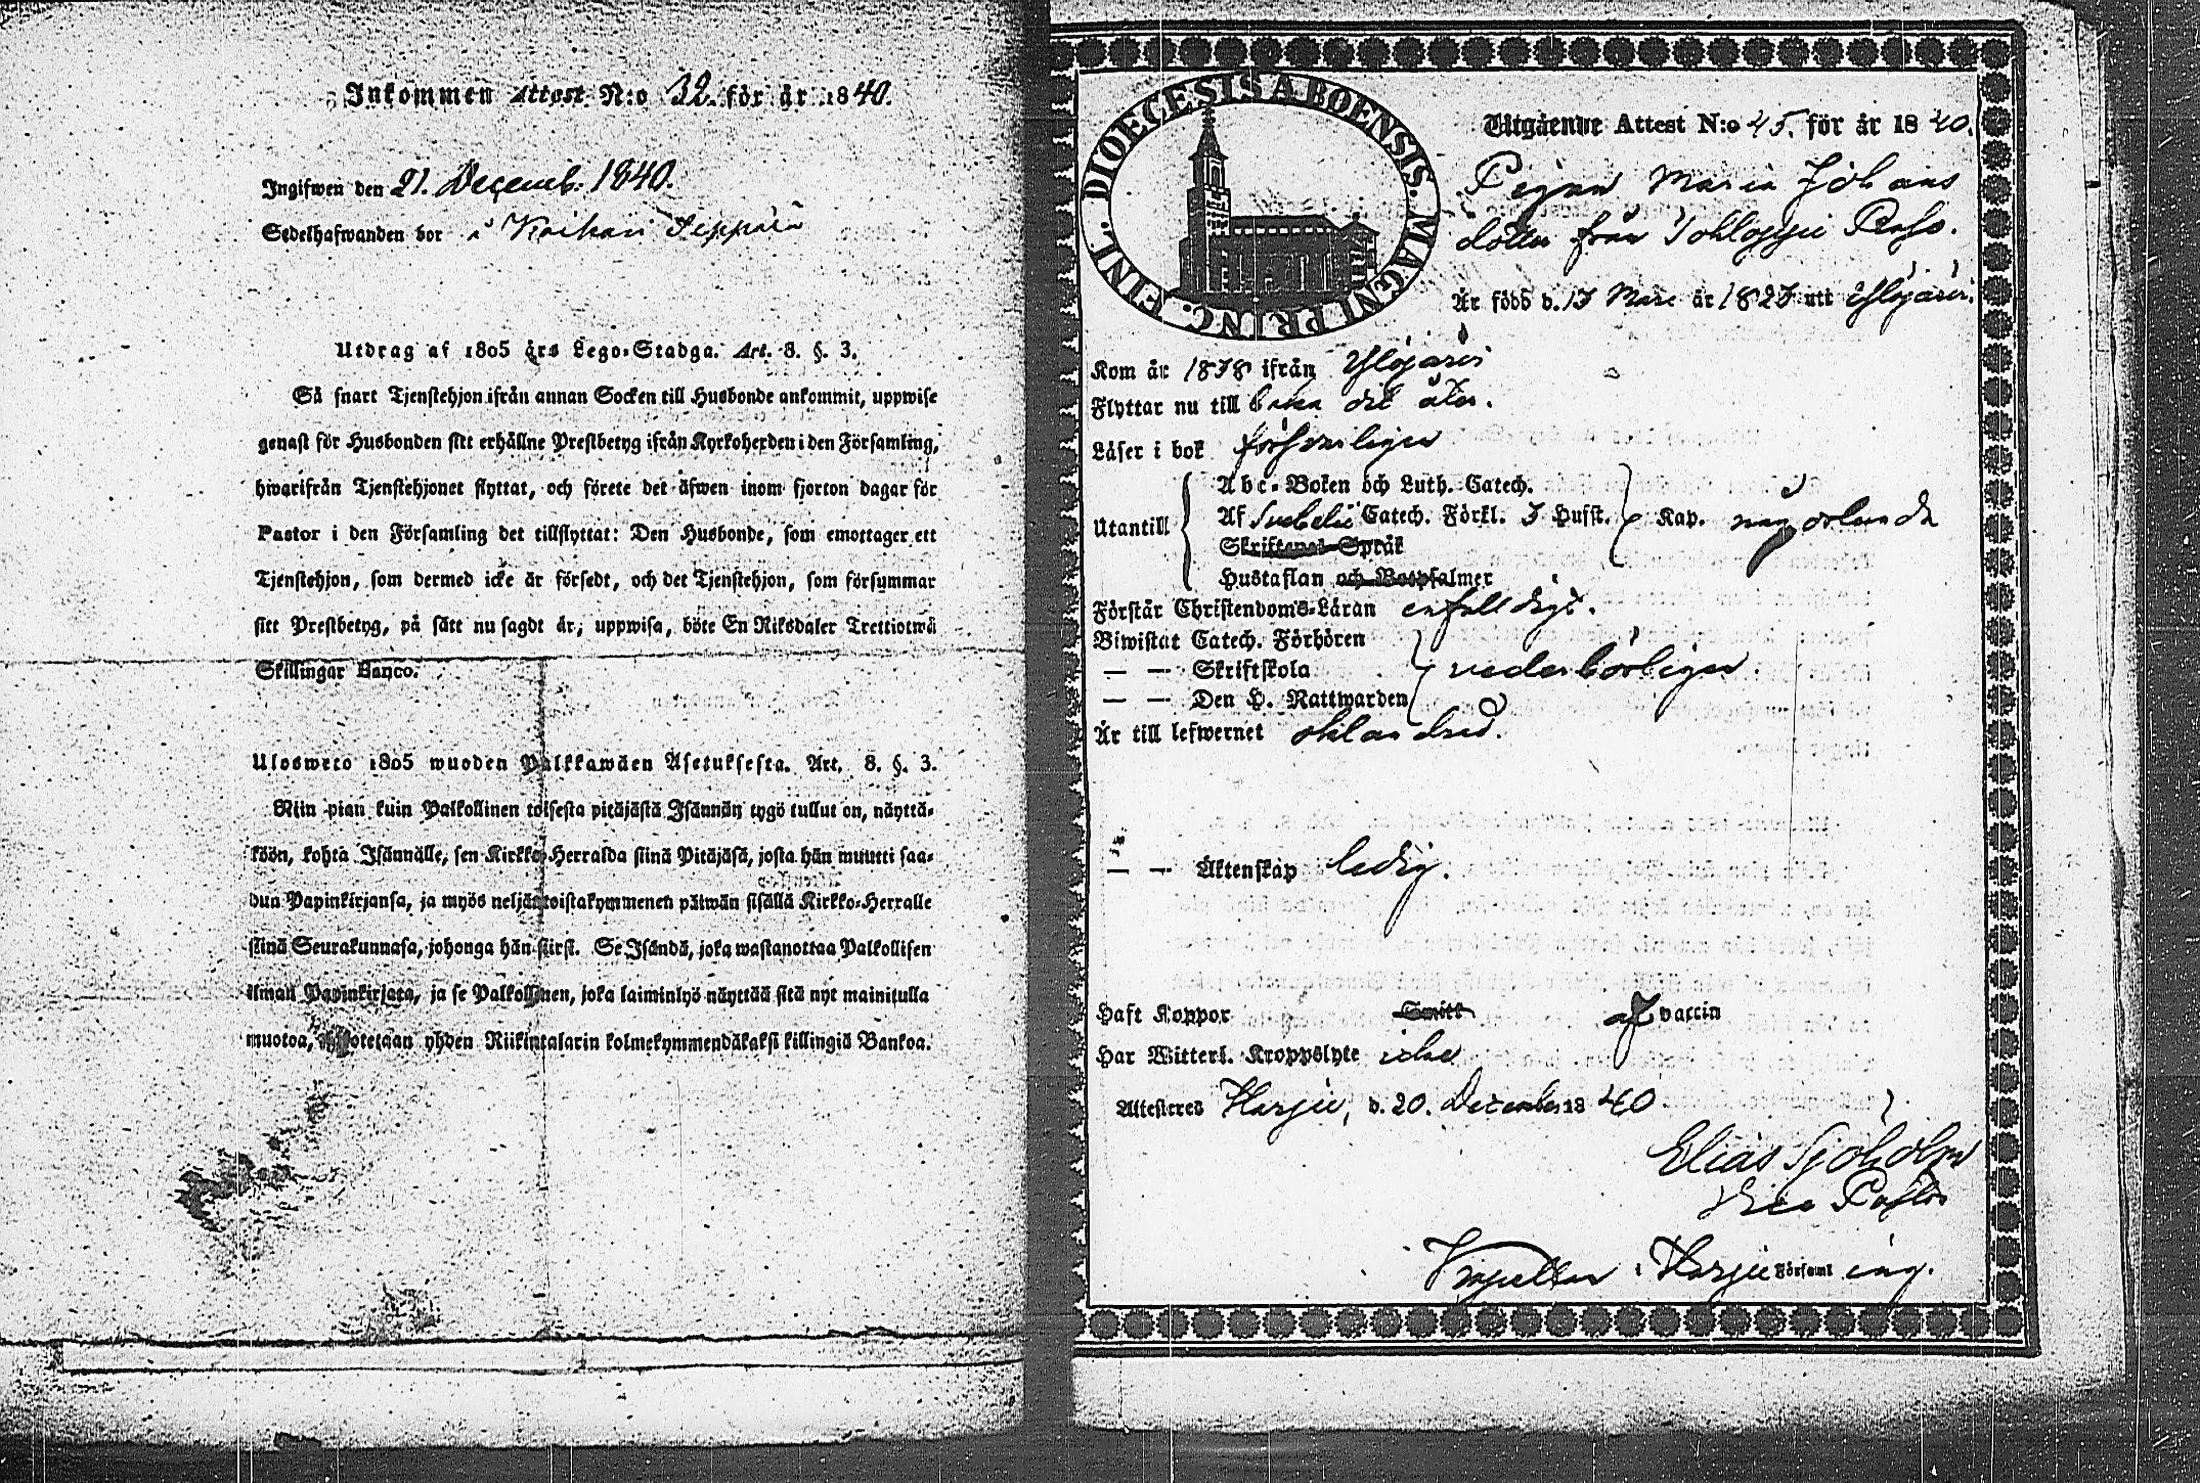 Inkommen Attest N:o 32. för år 1840.
Ingifwen den 21. Decemb. 1840.
Sedelhafwanden bor i Kaihari Seppälä
Utdrag af 1805 års Lego-Stadga. Art. 8. §. 3.
Så snart Tjenstehjon ifrån annan Socken till Husbonde ankommit, uppwise
genast för Husbonden sitt erhållne Prestbetyg ifrån Kyrkoherden i den Församling,
hwarifrån Tjenstehjonet flyttat, och förete det äfwen inom fjorton dagar för
Pastor i den Församling det tillflyttat: Den Husbonde, som emottager ett
Tjenstehjon, som dermed icke är försedt, och det Tjenstehjon, som försummar
sitt Prestbetyg, på sätt nu sagdt är, uppwisa, böte En Riksdaler Trettiotwå
Skillingar Banco.
Uloswето 1805 wuoden Palkkawäen Asetuksesta. Art. 8. §. 3.
Niin pian kuin Palkollinen toisesta pitäjästä Isännän tygö tullut on, näyttä-
köön, kohta Isännälle, sen Kirkko-Herralda siinä Pitäjäsä, josta hän muutti saa-
dun Papinkirjansa, ja myös neljäntoistakymmenen päiwän sisällä Kirkko-Herralle
siinä Seurakunnasa, johonga hän siirsi. Se Isändä, joka wastanottaa Palkollisen
ilman Papinkirjata, ja se Palkollinen, joka laiminlyö näyttää sitä nyt mainitulla
muotoa, sakotetaan yhden Riikintalarin kolmekymmendäkaksi killingiä Bankoa.
DIOECESIS ABOENSIS. MAGNI PRINC. FINL.
Utgående Attest N:o 45. för år 1840.
Pigan Maria Johans
dotter från Tohloppi
Är född d. 13 Mars år 1823 uti Ylöjärvi.
Kom år 1838 ifrån Ylöjärvi
Flyttar nu till baka dit åter.
Läser i bok försvarligen
Utantill
Abc-Boken och Luth. Catech.
Af Svebelii Catech. Förkl. 3 Husst. Kap. någorlunda
Skriftenes Språk
Hustaflan och Botpsalmer
Förstår Christendoms-Läran enfaldigt.
Biwistat Catech. Förhören
— — Skriftskola vederbörligen.
— — Den H. Nattwarden
Är till lefwernet oklandrad.
— — Äktenskap ledig.
Haft Koppor Smitt af vaccin
Har Witterl. Kroppslyte icke
Attesteres Harju, d. 20. December 1840.
Elias Sjöholm
Vice Pastor
Kapellan i Harju Församling.